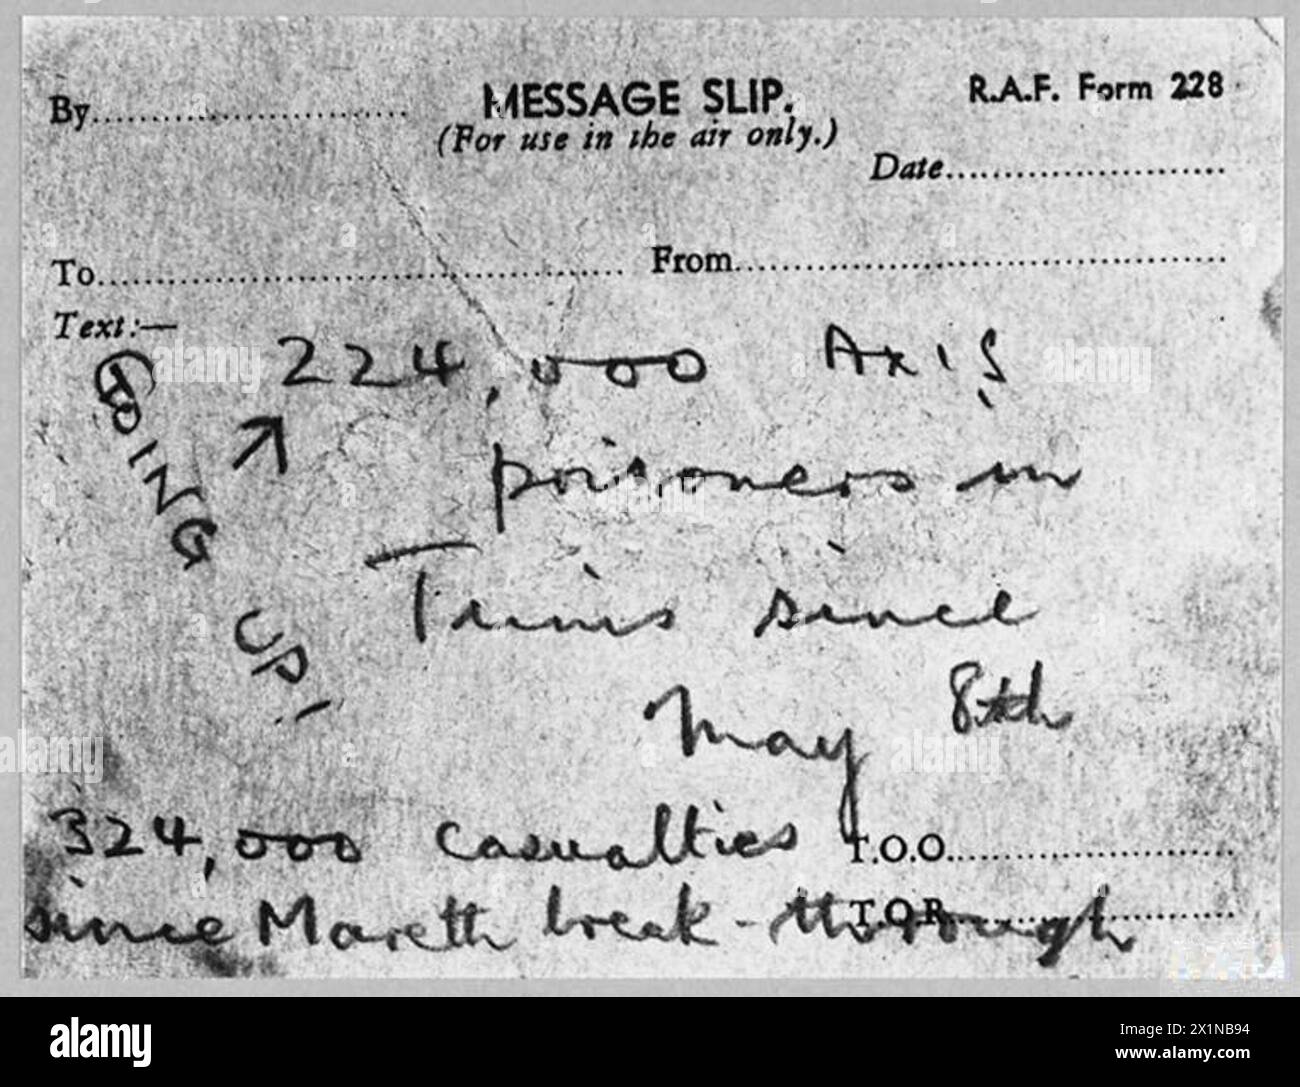 By
MESSAGE SLIP.
R.A.F. Form 228
(For use in the air only.)
Date
To
From
Text:—
224,000 Axis
prisoners in
Tunis since
May 8th
GOING UP!
324,000 casualties
T.O.O.
since Mareth break-through
T.O.R.
alamy
Image ID: 2X1NB94
www.alamy.com